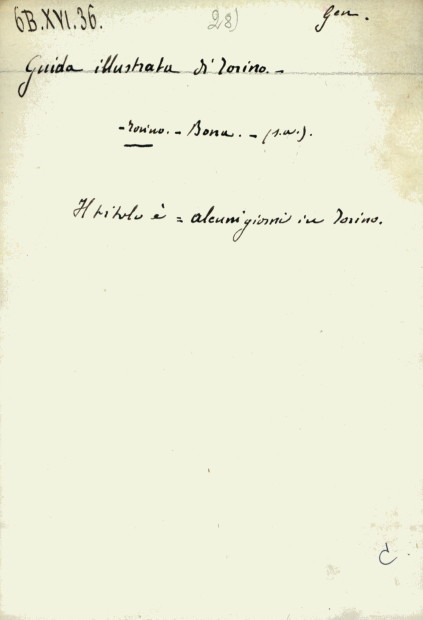 6B.XVI.36. 28) Gen.
Guida illustrata di Torino.-
-Torino.- Bona.- (s.a.).
Il titolo è = alcuni giorni in Torino.
C